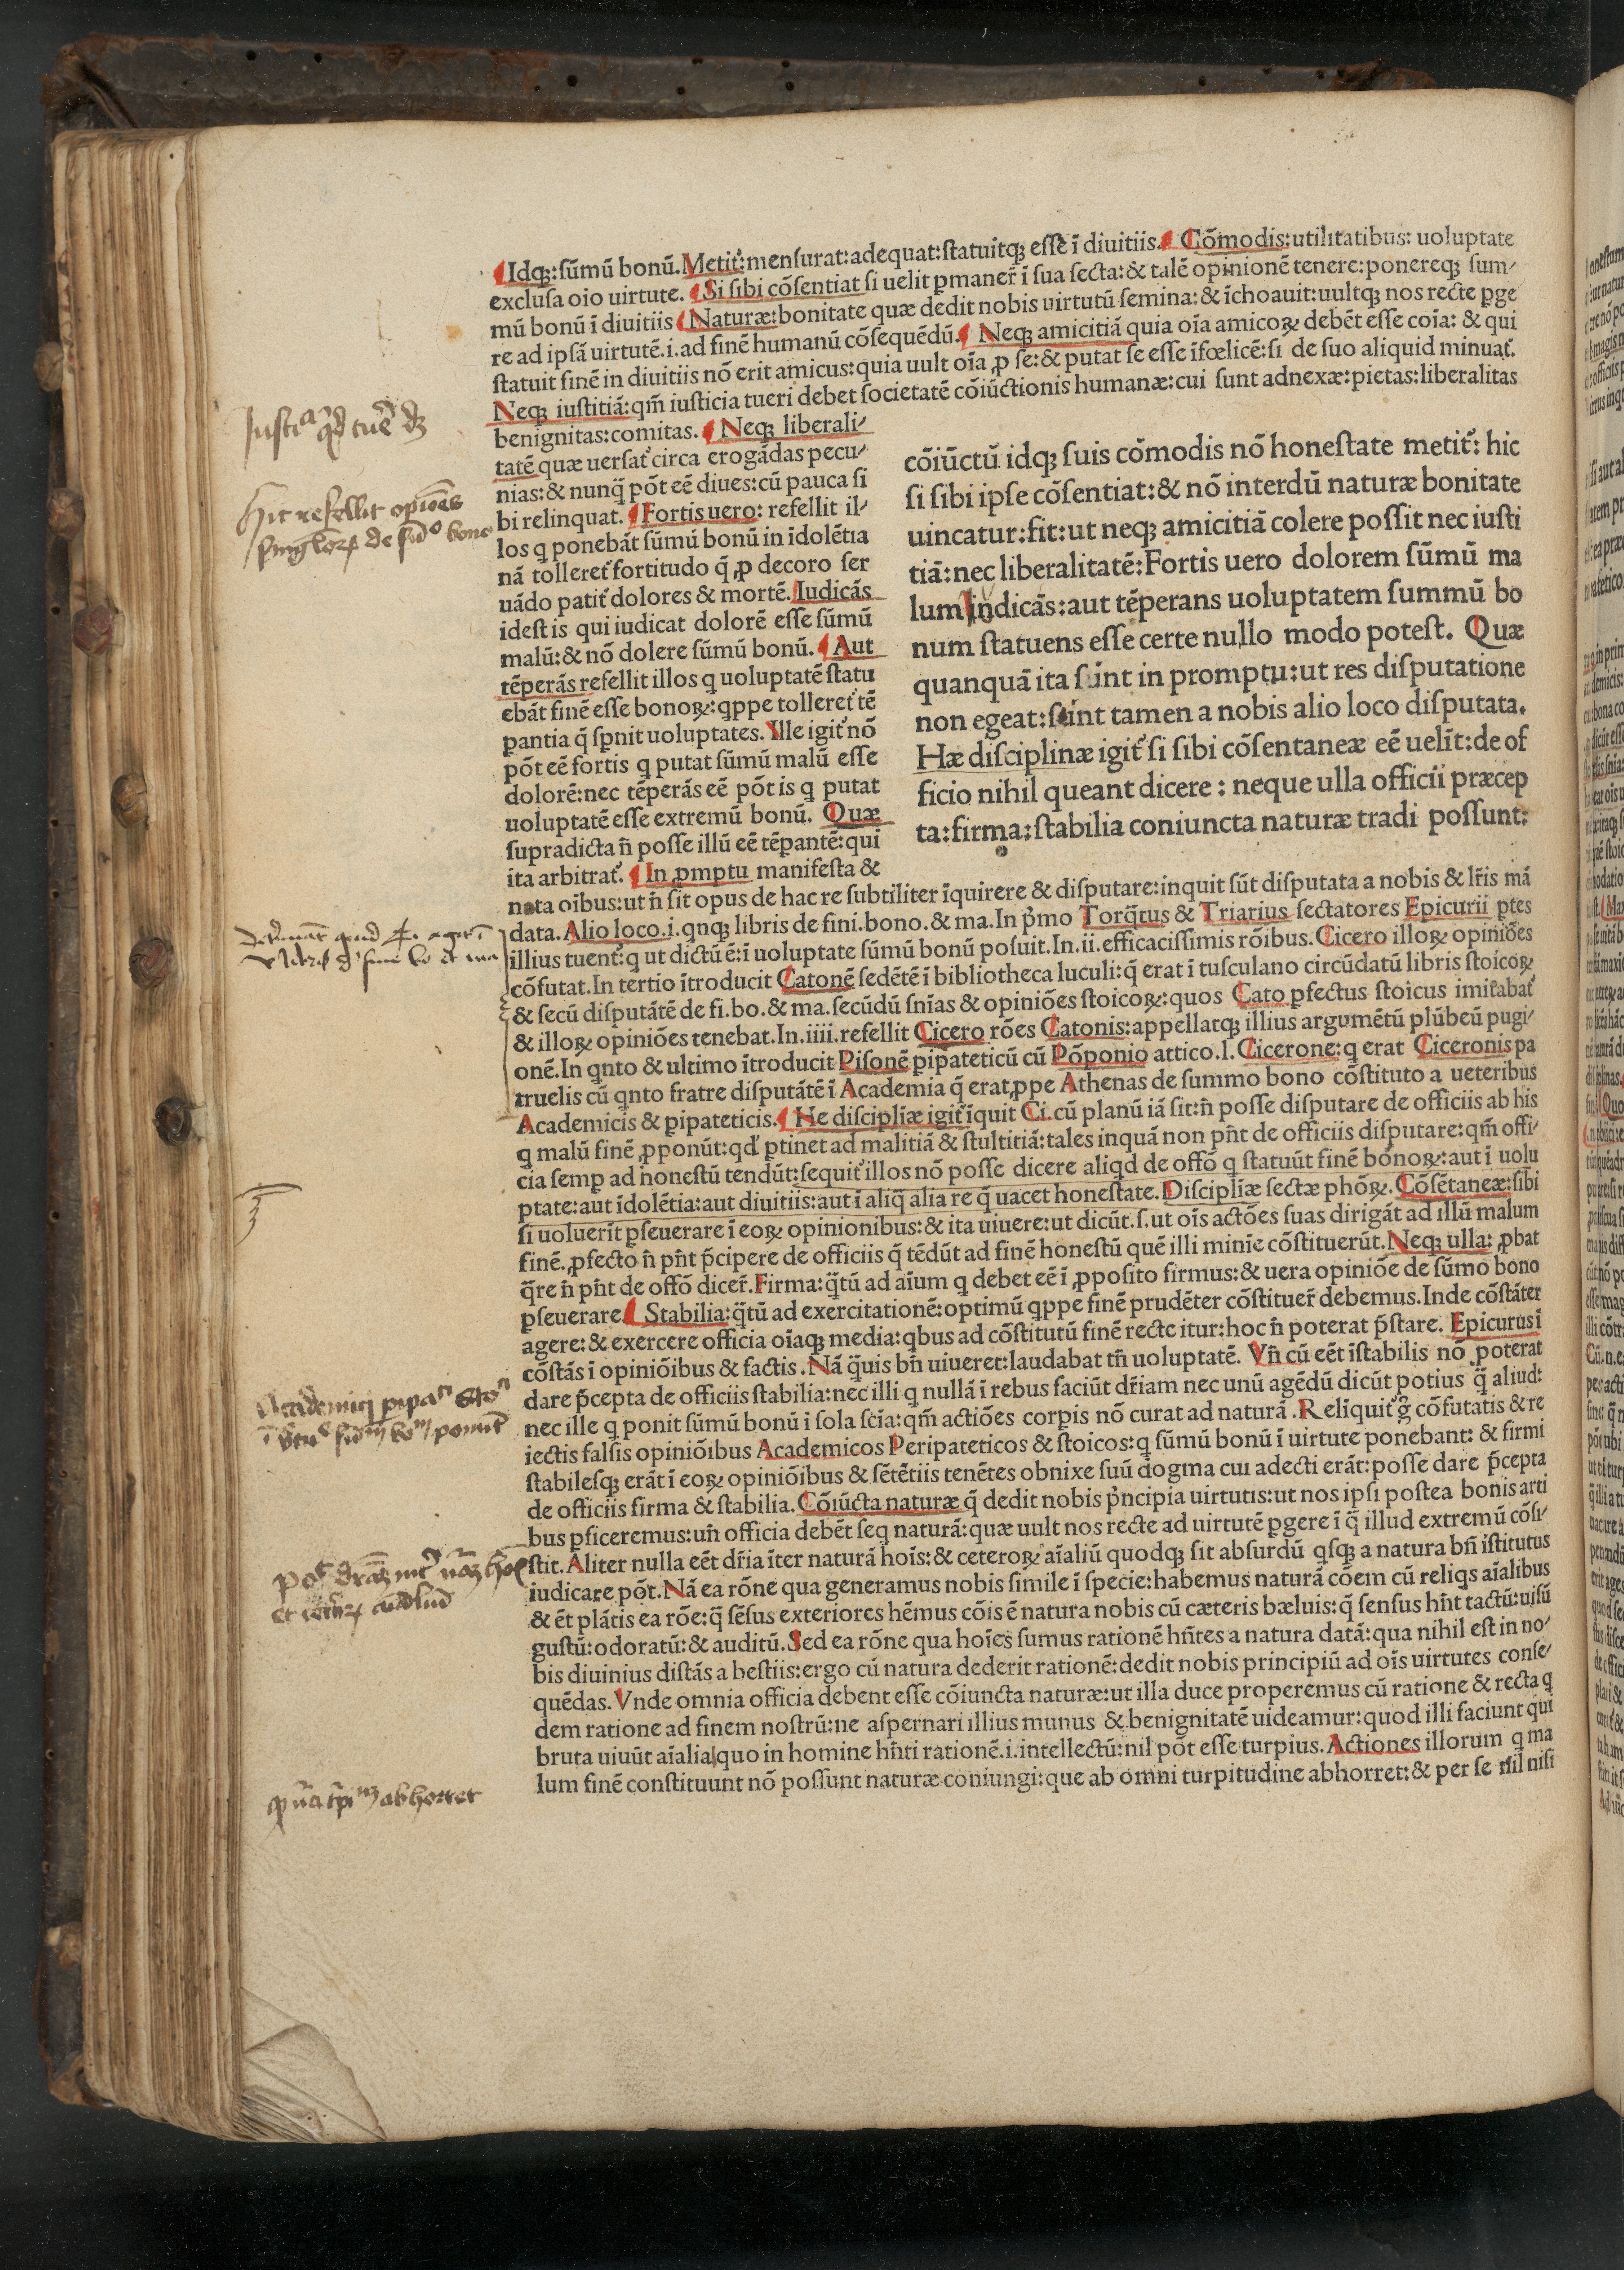 ¶Idqꝫ:ſūmū bonū.Metit᷑:menſurat:adequat:ſtatuitqꝫ eſſe ī diuitiis.¶ Cōmodis:utilitatibus: uoluptate
excluſa oīo uirtute. ¶Si ſibi cōſentiat ſi uelit ꝑmaner̄ ī ſua ſecta:& talē opinionē tenere:ponereqꝫ ſum⸗
mū bonū ī diuitiis ¶Naturæ:bonitate quæ dedit nobis uirtutū ſemina:& īchoauit:uultqꝫ nos recte ꝑge
re ad ipſā uirtutē.i.ad finē humanū cōſequēdū.¶ Neqꝫ amicitiā quia oīa amicoꝝ debēt eſſe coīa: & qui
ſtatuit finē in diuitiis nō erit amicus:quia uult oīa ꝓ ſe:& putat ſe eſſe īfœlicē:ſi de ſuo aliquid minuat᷑.
Neqꝫ iuſtitiā:qm̄ iuſticia tueri debet ſocietatē cōiūctionis humanæ:cui ſunt adnexæ:pietas:liberalitas
benignitas:comitas. ¶Neqꝫ liberali⸗
tatē quæ uerſat᷑ circa erogādas pecu⸗
nias:& nunq̄ pōt eē diues:cū pauca ſi
bi relinquat. ¶Fortis uero: refellit il⸗
los q ponebāt ſūmū bonū in īdolētia
nā tolleret᷑ fortitudo q̄ ꝓ decoro ſer
uādo patit᷑ dolores & mortē.Iudicās
ideſt is qui iudicat dolorē eſſe ſūmū
malū:& nō dolere ſūmū bonū. ¶Aut
tēperās refellit illos q uoluptatē ſtatu
ebāt finē eſſe bonoꝝ:qppe tolleret᷑ tē
pantia q̄ ſpnit uoluptates. Ille igit᷑ nō
pōt eē fortis q putat ſūmū malū eſſe
dolorē:nec tēperās eē pōt is q putat
uoluptatē eſſe extremū bonū. Quæ
ſupradicta n̄ poſſe illū eē tēpantē:qui
ita arbitrat᷑. ¶In ꝓmptu manifeſta &
cōiūctū idqꝫ ſuis cōmodis nō honeſtate metit᷑: hic
ſi ſibi ipſe cōſentiat:& nō interdū naturæ bonitate
uincatur:fit:ut neqꝫ amicitiā colere poſſit nec iuſti
tiā:nec liberalitatē:Fortis uero dolorem ſūmū ma
lum indicās:aut tēperans uoluptatem ſummū bo
num ſtatuens eſſe certe nullo modo poteſt. Quæ
quanquā ita ſint in promptu:ut res diſputatione
non egeat:ſunt tamen a nobis alio loco diſputata.
Hæ diſciplinæ igit᷑ ſi ſibi cōſentaneæ eē uelīt:de of
ficio nihil queant dicere : neque ulla officii præcep
ta:firma:ſtabilia coniuncta naturæ tradi poſſunt:
nota oībus:ut n̄ ſit opus de hac re ſubtiliter īquirere & diſputare:inquit ſūt diſputata a nobis & lr̄is mā
data. Alio loco.i.qnqꝫ libris de fini.bono.& ma.In pͥmo Torq̄tus & Triarius ſectatores Epicurii ꝑtes
illius tuent᷑:q ut dictū ē:ī uoluptate ſūmū bonū poſuit.In.ii.efficaciſſimis rōibus.Cicero illoꝝ opiniōes
cōfutat.In tertio ītroducit Catonē ſedētē ī bibliotheca luculi:q̄ erat ī tuſculano circūdatū libris ſtoicoꝝ
& ſecū diſputātē de fi.bo.& ma.ſecūdū ſnīas & opiniōes ſtoicoꝝ:quos Cato ꝑfectus ſtoicus imitabat᷑
& illoꝝ opiniōes tenebat.In.iiii.refellit Cicero rōes Catonis:appellatqꝫ illius argumētū plūbeū pugi⸗
onē.In qnto & ultimo ītroducit Piſonē pipateticū cū Pōponio attico.l.Cicerone:q erat Ciceronis pa
truelis cū qnto fratre diſputātē ī Academia q̄ erat ꝓpe Athenas de ſummo bono cōſtituto a ueteribus
Academicis & pipateticis.¶ He diſcipliæ igit᷑ īquit Ci.cū planū iā ſit:n̄ poſſe diſputare de officiis ab his
q malū finē ꝓponūt:qd̓ ꝑtinet ad malitiā & ſtultitiā:tales inquā non pn̄t de officiis diſputare:qm̄ offi⸗
cia ſemp ad honeſtū tendūt:ſequit᷑ illos nō poſſe dicere aliqd de offō q ſtatuūt finē bonoꝝ:aut ī uolu
ptate:aut īdolētia:aut diuitiis:aut ī aliq̄ alia re q̄ uacet honeſtate.Diſcipliæ ſectæ phōꝝ.Cōſētaneæ:ſibi
ſi uoluerīt ꝑſeuerare ī eoꝝ opinionibus:& ita uiuere:ut dicūt.ſ.ut oīs actōes ſuas dirigāt ad illū malum
finē.ꝓfecto n̄ pn̄t p̄cipere de officiis q̄ tēdūt ad finē honeſtū quē illi minīe cōſtituerūt.Neqꝫ ulla: ꝓbat
q̄re n̄ pn̄t de offō dicer̄.Firma:q̄tū ad aīum q debet eē ī ꝓpoſito firmus:& uera opiniōe de ſūmo bono
ꝑſeuerare¶ Stabilia:q̄tū ad exercitationē:optimū qppe finē prudēter cōſtituer̄ debemus.Inde cōſtāter
agere:& exercere officia oīaqꝫ media:qbus ad cōſtitutū finē recte itur:hoc n̄ poterat p̄ſtare. Epicurus ī
cōſtās ī opiniōibus & factis .Nā q̄uis bn̄ uiueret:laudabat tn̄ uoluptatē. Vn̄ cū eēt īſtabilis nō poterat
dare p̄cepta de officiis ſtabilia:nec illi q nullā ī rebus faciūt dr̄iam nec unū agēdū dicūt potius q̄ aliud:
nec ille q ponit ſūmū bonū ī ſola ſcīa:qm̄ actiōes corpis nō curat ad naturā .Relīquit᷑ g̃ cōfutatis & re
iectis falſis opiniōibus Academicos Peripateticos & ſtoicos:q ſūmū bonū ī uirtute ponebant: & firmi
ſtabileſqꝫ erāt ī eoꝝ opiniōibus & ſētētiis tenētes obnixe ſuū dogma cui adecti erāt:poſſe dare p̄cepta
de officiis firma & ſtabilia.Cōiūcta naturæ q̄ dedit nobis pͥncipia uirtutis:ut nos ipſi poſtea bonis arti
bus ꝑficeremus:un̄ officia debēt ſeq naturā:quæ uult nos recte ad uirtutē ꝑgere ī q̄ illud extremū cōſi⸗
ſtit.Aliter nulla eēt dr̄ia īter naturā hoīs:& ceteroꝝ aīaliū quodqꝫ ſit abſurdū qſqꝫ a natura bn̄ īſtitutus
iudicare pōt.Nā ea rōne qua generamus nobis ſimile ī ſpecie:habemus naturā cōem cū reliqs aīalibus
& ēt plātis ea rōe:q̄ ſēſus exteriores hēmus cōis ē natura nobis cū cæteris bæluis:q̄ ſenſus hn̄t tactū:uiſū
guſtū:odoratū:& auditū.Sed ea rōne qua hoīes ſumus rationē hn̄tes a natura datā:qua nihil eſt in no⸗
bis diuinius diſtās a beſtiis:ergo cū natura dederit rationē:dedit nobis principiū ad oīs uirtutes conſe⸗
quēdas.Vnde omnia officia debent eſſe cōiuncta naturæ:ut illa duce properemus cū ratione & recta q
dem ratione ad finem noſtrū:ne aſpernari illius munus & benignitatē uideamur:quod illi faciunt qui
bruta uiuūt aīalia quo in homine hn̄ti rationē.i.intellectū:nil pōt eſſe turpius.Actiones illorum q ma
lum finē conſtituunt nō poſſunt naturæ coniungi:que ab omni turpitudine abhorret:& per ſe nil niſi
Hic refellit opiōes
abhorret